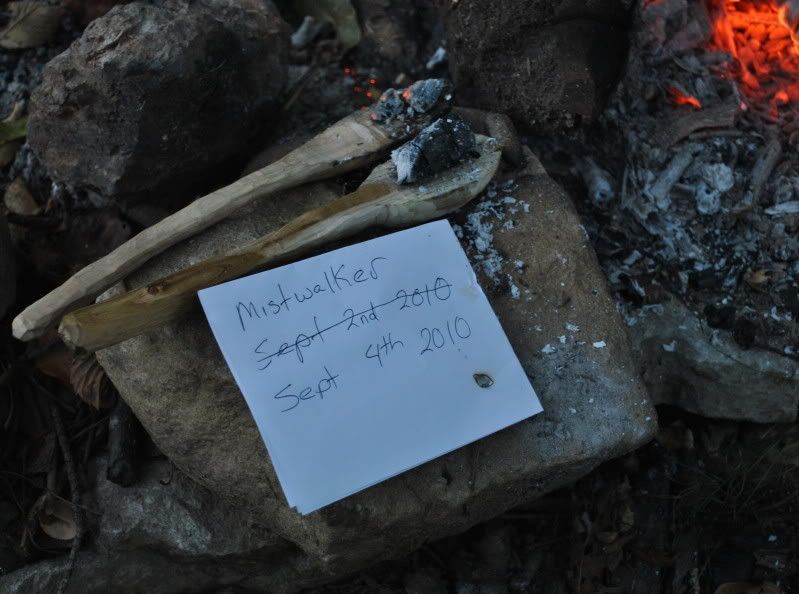 Mistwalker
Sept 2nd 2010
Sept 4th 2010